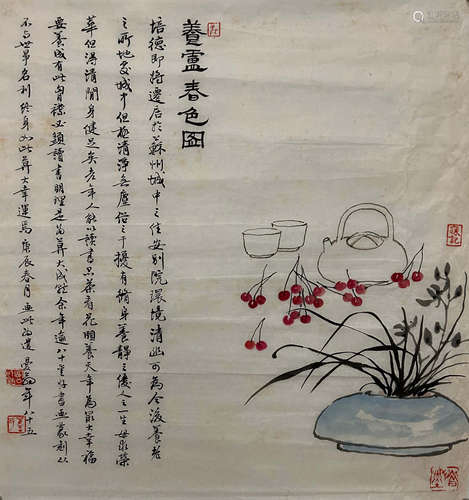 養廬春色圖
培德即將遷居於蘇州城中之佳安別院環境清幽可為今後養老
之所地處城中但極清淨無塵俗之干擾有脩身養靜之優人之一生毋求榮
華但得清閒身健足矣老年人能以讀書品茶看花頤養天年為最大幸福
要養成有此胸襟必須讀書明理是為大成 余年逾八十 好書畫篆刻以
不與世爭名利終身如此算大幸運焉庚辰春月畫此为遣 年八十五